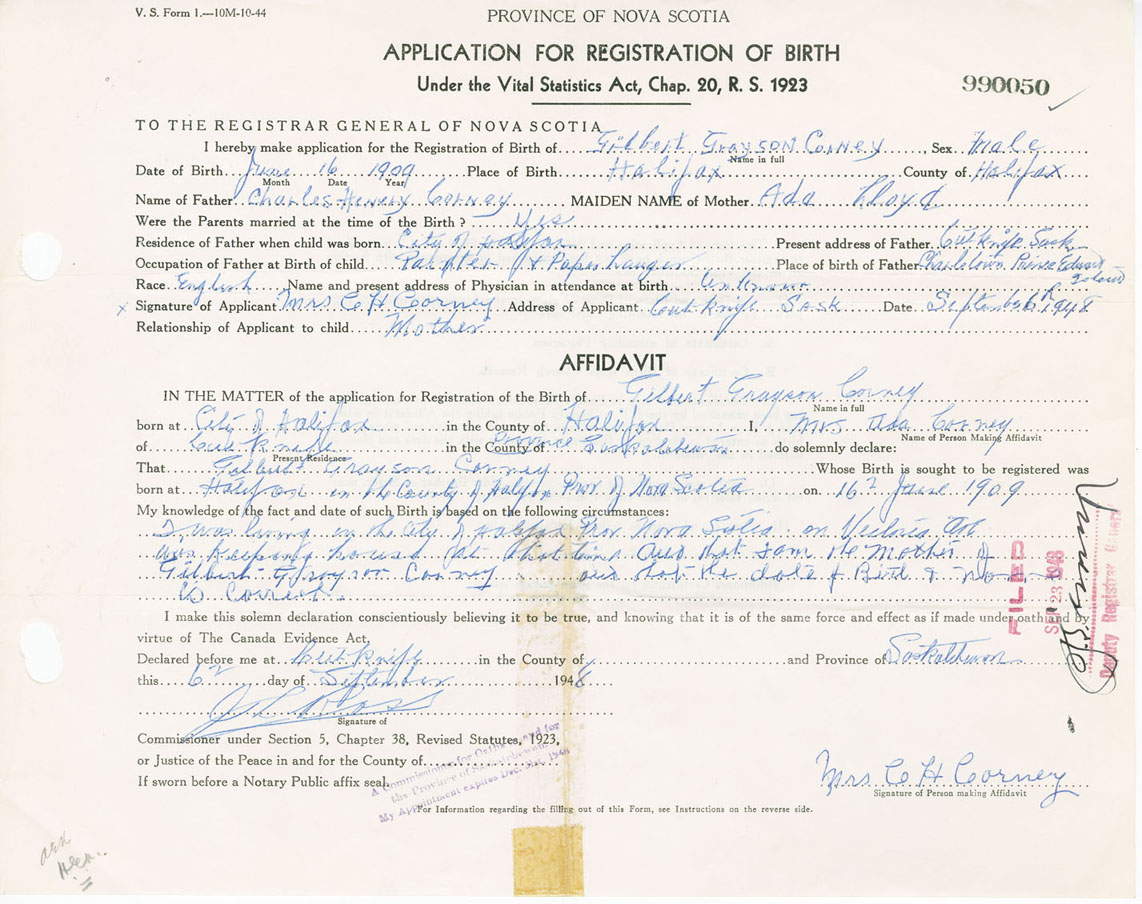 V. S. Form 1.—10M-10-44
PROVINCE OF NOVA SCOTIA
APPLICATION FOR REGISTRATION OF BIRTH
Under the Vital Statistics Act, Chap. 20, R. S. 1923
990050
TO THE REGISTRAR GENERAL OF NOVA SCOTIA
I hereby make application for the Registration of Birth of Gilbert Grayson Corney, Sex Male
Name in full
Date of Birth June 16 1909 Place of Birth Halifax County of Halifax
Month Date Year
Name of Father Charles Henery Corney MAIDEN NAME of Mother Ada Lloyd
Were the Parents married at the time of the Birth? Yes
Residence of Father when child was born City of Halifax Present address of Father Cutknife Sask
Occupation of Father at Birth of child Painter & Paper hanger Place of birth of Father Charlotown Prince Edward Island
Race English Name and present address of Physician in attendance at birth unknown
x Signature of Applicant Mrs C H Corney Address of Applicant Cut knife Sask Date September 6 1948
Relationship of Applicant to child Mother
AFFIDAVIT
IN THE MATTER of the application for Registration of the Birth of Gilbert Grayson Corney
Name in full
born at City of Halifax in the County of Halifax I, Mrs Ada Corney
Name of Person Making Affidavit
of Cut Knife in the County of Province Saskatchewan do solemnly declare:
Present Residence
That Gilbert Grayson Corney Whose Birth is sought to be registered was
born at Halifax in the County of Halifax Prov. of Nova Scotia on 16th June 1909
My knowledge of the fact and date of such Birth is based on the following circumstances:
I was living in the City of Halifax Prov Nova Scotia on Victoria
was keeping house at that time and that I am the Mother of
Gilbert Grayson Corney and that the date of Birth & Name
is correct
I make this solemn declaration conscientiously believing it to be true, and knowing that it is of the same force and effect as if made under oath and by
virtue of The Canada Evidence Act,
Declared before me at Cut Knife in the County of and Province of Saskatchewan
this 6th day of September 1948
Signature of
Commissioner under Section 5, Chapter 38, Revised Statutes, 1923,
or Justice of the Peace in and for the County of
If sworn before a Notary Public affix seal.
A Commissioner for Oaths in and for
the Province of Saskatchewan
My Appointment expires Dec. 31st, 1948
Mrs C H Corney
Signature of Person making Affidavit
For Information regarding the filling out of this Form, see Instructions on the reverse side.
FILED
SEP 23 1948
Deputy Registrar General